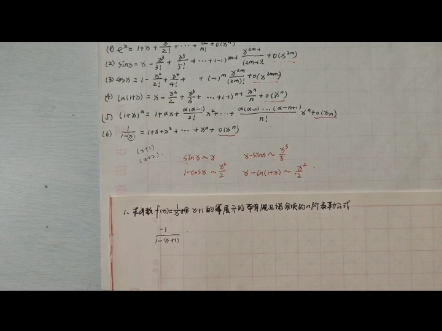 (1) e^x = 1+x+x²/2!+⋯+x^n/n!+o(x^n)
(2) sinx = x-x³/3!+x⁵/5!+⋯+(-1)^m x^(2m+1)/(2m+1)!
(3) cosx = 1-x²/2!+x⁴/4!+⋯+(-1)^m x^(2m)/(2m)!+o(x^(2m))
(4) ln(1+x) = x-x²/2+x³/3+⋯+(-1)^(n-1) x^n/n+o(x^n)
(5) (1+x)^α = 1+αx+α(α-1)/2! x²+⋯+α(α-1)⋯(α-n+1)/n! x^n+o(x^n)
(6) 1/(1-x) = 1+x+x²+⋯+x^n+o(x^n)
sinx~x x-sinx~
1-cosx~x²/2 x-ln(1+x)~x²/2
1. 求函数 f(x)=1/x 按 x+1 的幂展开的带有佩亚诺余项的n阶泰勒公式
-1/(1-(x+1))